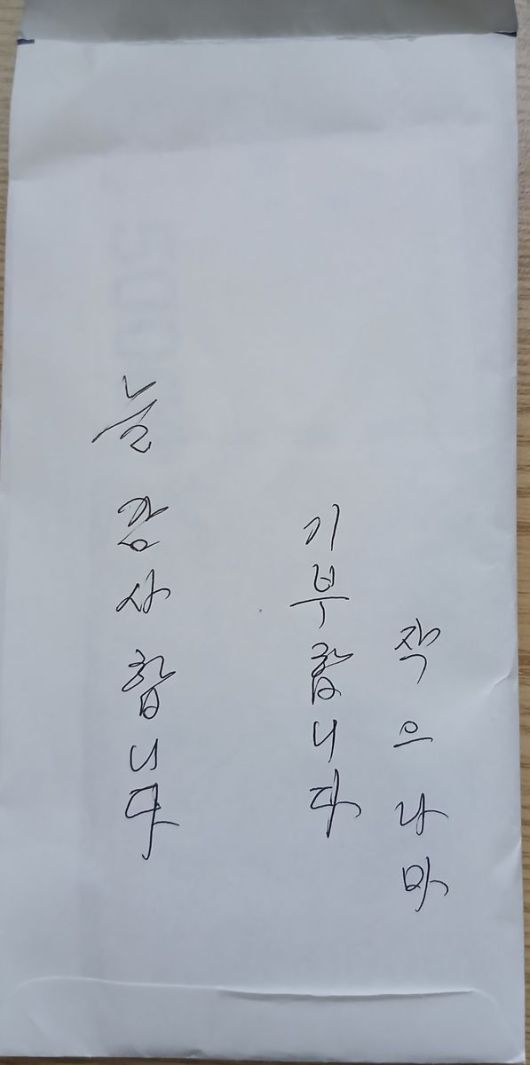 작으나마
기부합니다
늘 감사합니다